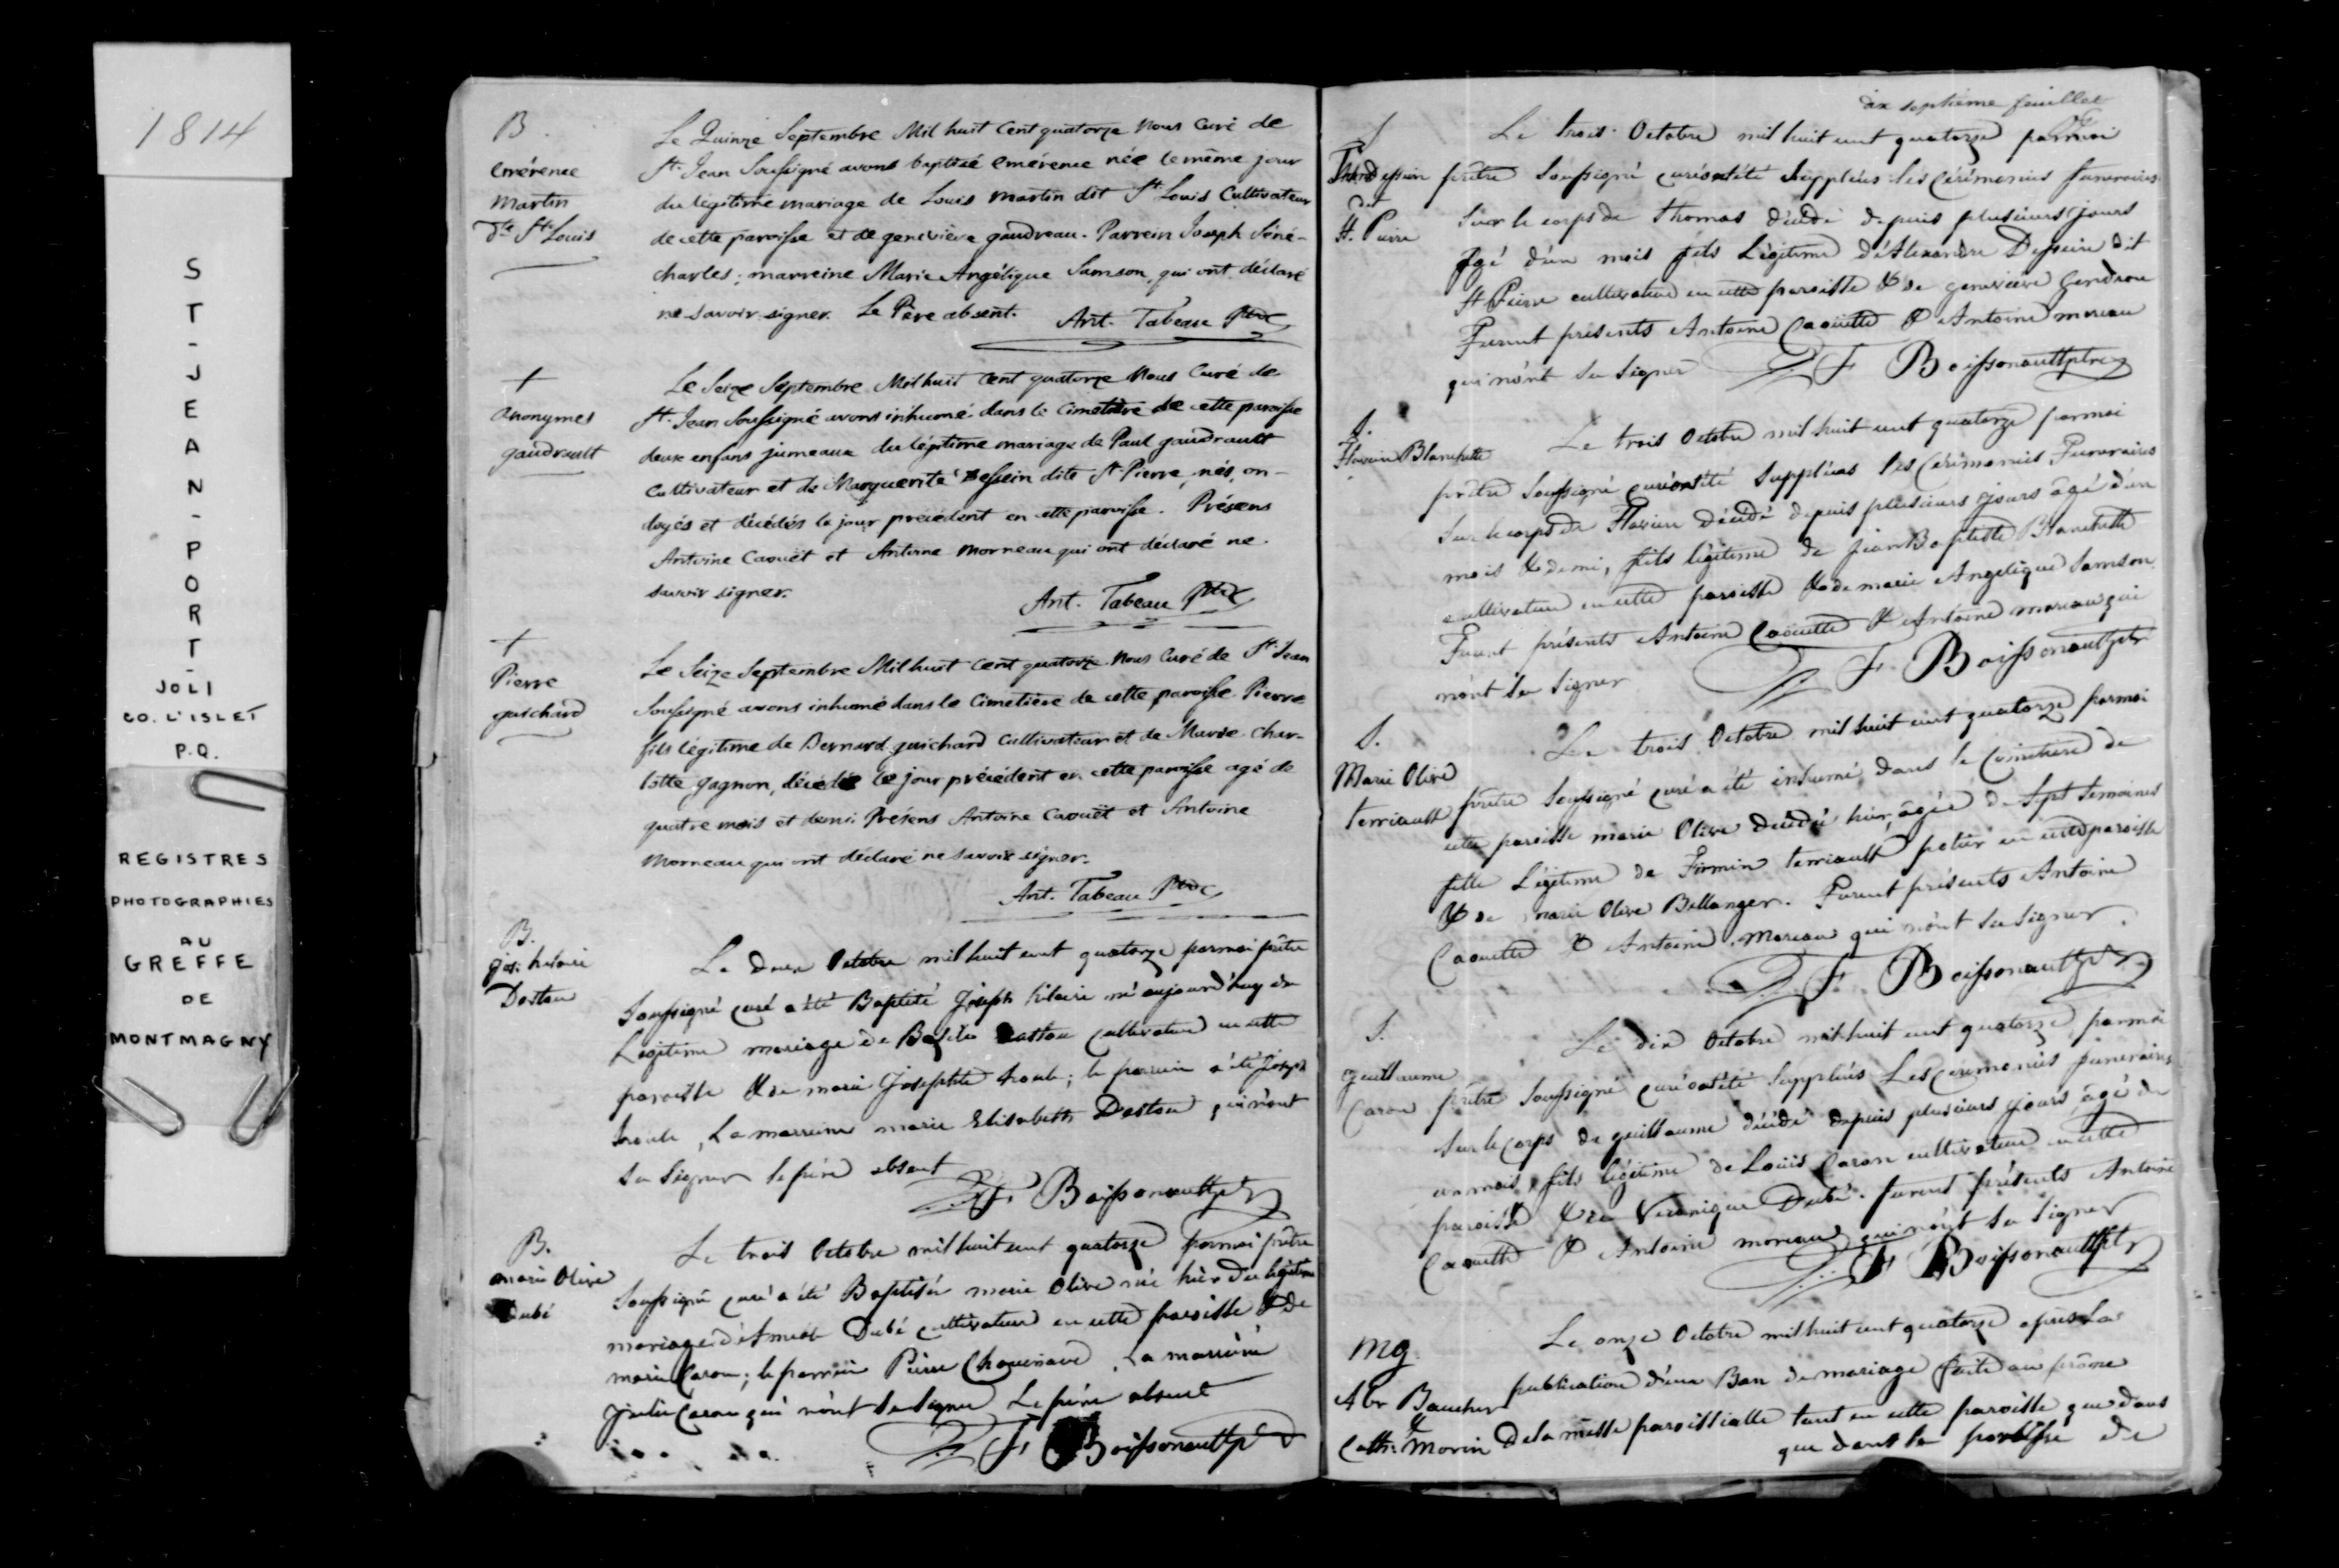 1814
ST-JEAN-PORT-
JOLI
CO. L'ISLET
P.Q.
REGISTRES
PHOTOGRAPHIES
AU
GREFFE
DE
MONTMAGNY
B.
Emérence
Martin
dte St Louis
Le Quinze Septembre Mil huit Cent quatorze Nous Curé de
St. Jean Soussigné avons baptisé Emérence née le même jour
du légitime mariage de Louis Martin dit St Louis Cultivateur
de cette paroisse et de geneviève gaudreau. Parrein Joseph Séné-
charles; marreine Marie Angélique Samson, qui ont déclaré
ne savoir signer. Le Père absent.
Ant. Tabeau Ptre
+
Anonymes
gaudrault
Le Seize Septembre Mil huit Cent quatorze Nous Curé de
St. Jean Soussigné avons inhumé dans le Cimetière de cette paroisse
deux enfans jumeaux du légitime mariage de Paul gaudrault
Cultivateur et de Marguerite Dessein dite St Pierre, nés, on-
doyés et décédés le jour précédent en cette paroisse. Présens
Antoine Caouët et Antoine Morneau qui ont déclaré ne
savoir signer.
Ant. Tabeau Ptre
+
Pierre
guichard
Le Seize Septembre Mil huit Cent quatorze Nous Curé de St Jean
Soussigné avons inhumé dans le Cimetière de cette paroisse Pierre
fils légitime de Bernard guichard Cultivateur et de Marie Char-
lotte gagnon, décédé le jour précédent en cette paroisse agé de
quatre mois et demi Présens Antoine Caouët et Antoine
Morneau qui ont déclaré ne savoir signer.
Ant. Tabeau Ptre
B.
Jos. hilaire
Dastou
Le deux Octobre mil huit cent quatorze par moi prêtre
Soussigné curé a été Baptisé Joseph hilaire né aujourd'huy du
Légitime mariage de Basile Dastou cultivateur en cette
paroisse & de marie Josephte ; le parrain a été Joseph
, La marraine marie Elisabeth Dastou qui n'ont
su Signer le père absent
F Boissonnault ptre
B.
marie Olive
Dubé
Le trois Octobre mil huit cent quatorze par moi prêtre
Soussigné curé a été Baptisée marie Olive née hier du légitime
mariage d' Dubé cultivateur en cette paroisse & de
marie Caron; le parrain Pierre Chouinard, La marraine
Julie Caron qui n'ont Su Signer Le père absent
F Boissonnault ptre
dix septième feuillet
S
dit
St. Pierre
Le trois Octobre mil huit cent quatorze par moi
prêtre Soussigné curé a été Suppléés Les Cérémonies funeraires
Sur le corps de Thomas décédé depuis plusieurs jours
Agé d'un mois fils Légitime d'Alexandre Dessein dit
St Pierre cultivateur en cette paroisse & de geneviève Gendron
Furent présents Antoine Caouette & Antoine moreau
qui n'ont Su Signer
F Boissonnault ptre
S.
Flavien Blanchette
Le trois Octobre mil huit cent quatorze par moi
prêtre Soussigné curé a été Suppléés les Cérémonies Funeraires
Sur le corps de Flavien décédé depuis plusieurs jours âgé d'un
mois & demi, fils légitime de Jean Baptiste Blanchette
cultivateur en cette paroisse & de marie Angelique Samson
Furent présents Antoine Caouette & Antoine moreau qui
n'ont Su Signer
F Boissonnault ptr
S.
Marie Olive
Terriault
Le trois Octobre mil huit cent quatorze par moi
prêtre Soussigné curé a été inhumé dans le Cimetiere de
cette paroisse marie Olive décédé hier, âgée de Sept Semaines
fille Légitime de Firmin Terriault potier en cette paroisse
& de marie Olive Bellanger. Furent présents Antoine
Caouette & Antoine Moreau qui n'ont Su Signer.
F Boissonnault ptr
S.
guillaume
Caron
Le dix Octobre mil huit cent quatorze par moi
prêtre Soussigné curé a été Suppléés Les Cérémonies funeraires
Sur le corps de guillaume décédé depuis plusieurs jours âgé de
un mois, fils légitime de Louis Caron cultivateur en cette
paroisse & de Veronique Dubé. furent présents Antoine
Caouette & Antoine moreau qui n'ont Su Signer
F Boissonnault ptr
Mg.
Boucher
&
Cath. Morin
Le onze Octobre mil huit cent quatorze après La
publication d'un Ban de mariage faite au prône
De la messe paroissialle tant en cette paroisse que dans
que dans la paroisse de